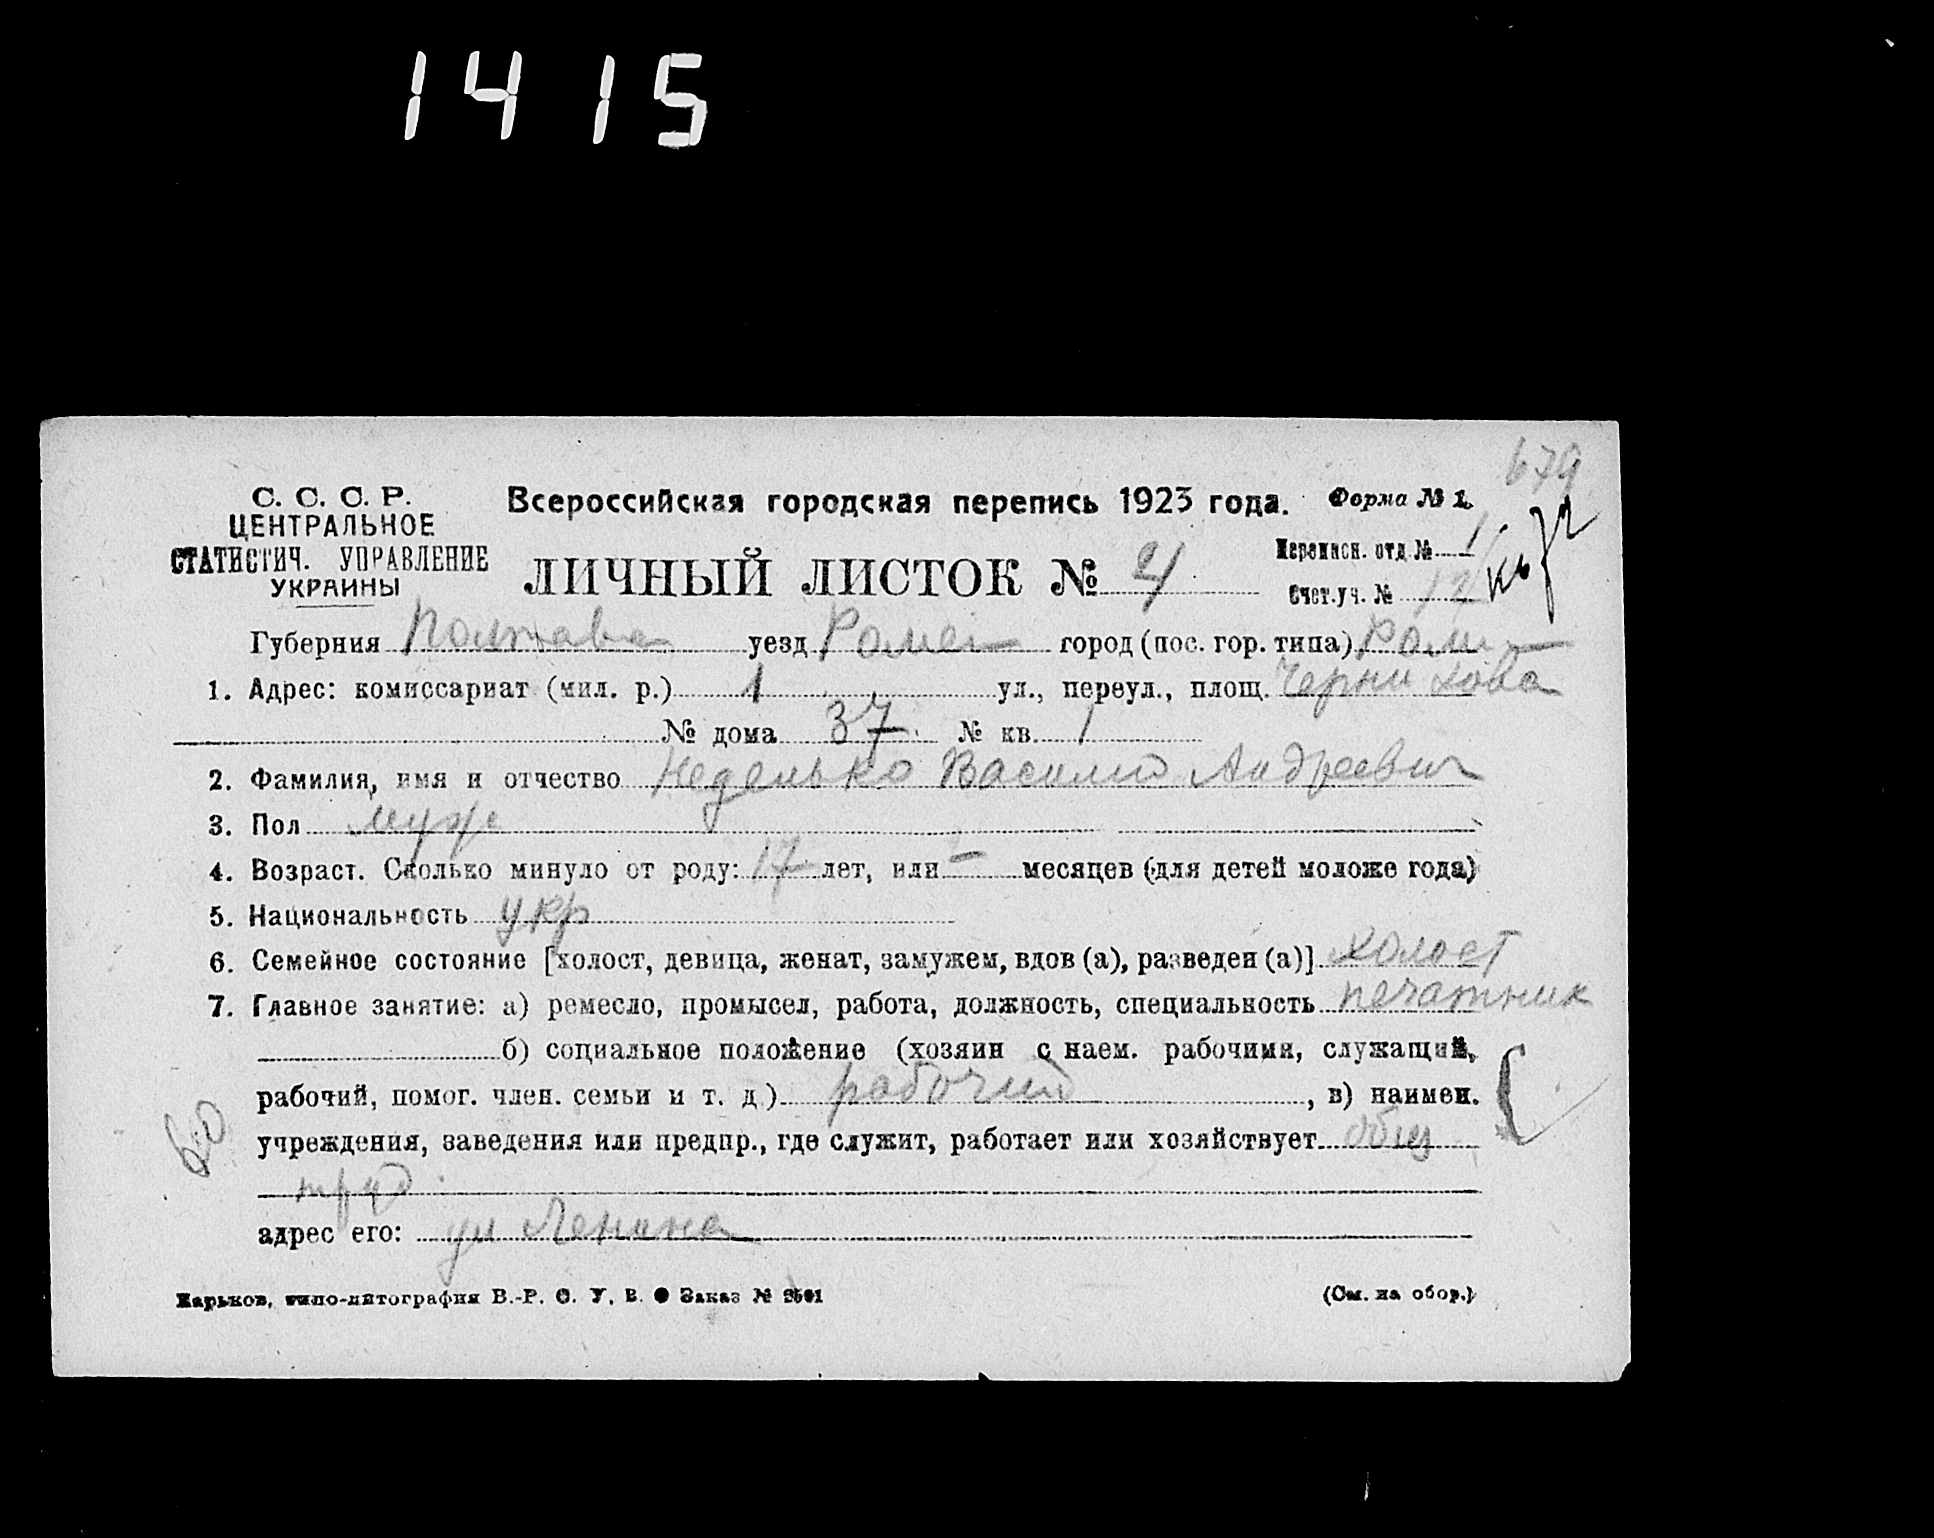 1415
679
С. С. С. Р.
ЦЕНТРАЛЬНОЕ
СТАТИСТИЧ. УПРАВЛЕНИЕ
УКРАИНЫ
Всероссийская городская перепись 1923 года. Форма № 1.
ЛИЧНЫЙ ЛИСТОК № 4
Переписн. отд. № 1
Счет. уч. № 12
Губерния Полтава уезд Ромен город (пос. гор. типа) Ромн
1. Адрес: комиссариат (мил. р.) 1 ул., переул., площ.
№ дома 37 № кв. 1
2. Фамилия, имя и отчество Неделько Василий Андреевич
3. Пол муж
4. Возраст. Сколько минуло от роду: 17 лет, или – месяцев (для детей моложе года)
5. Национальность укр
6. Семейное состояние [холост, девица, женат, замужем, вдов (а), разведен (а)] холост
7. Главное занятие: а) ремесло, промысел, работа, должность, специальность печатник
б) социальное положение (хозяин с наем. рабочими, служащий,
рабочий, помог. член. семьи и т. д.) рабочий, в) наимен.
60
учреждения, заведения или предпр., где служит, работает или хозяйствует общ
труд
адрес его: ул Ленина
Харьков, типо-литография В.-Р. О. У. В. Заказ №
(См. на обор.)